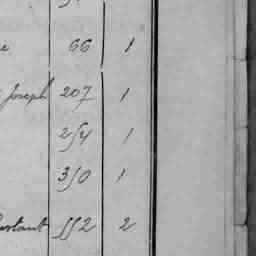 66 1
Joseph 207 1
254 1
350 1
552 2